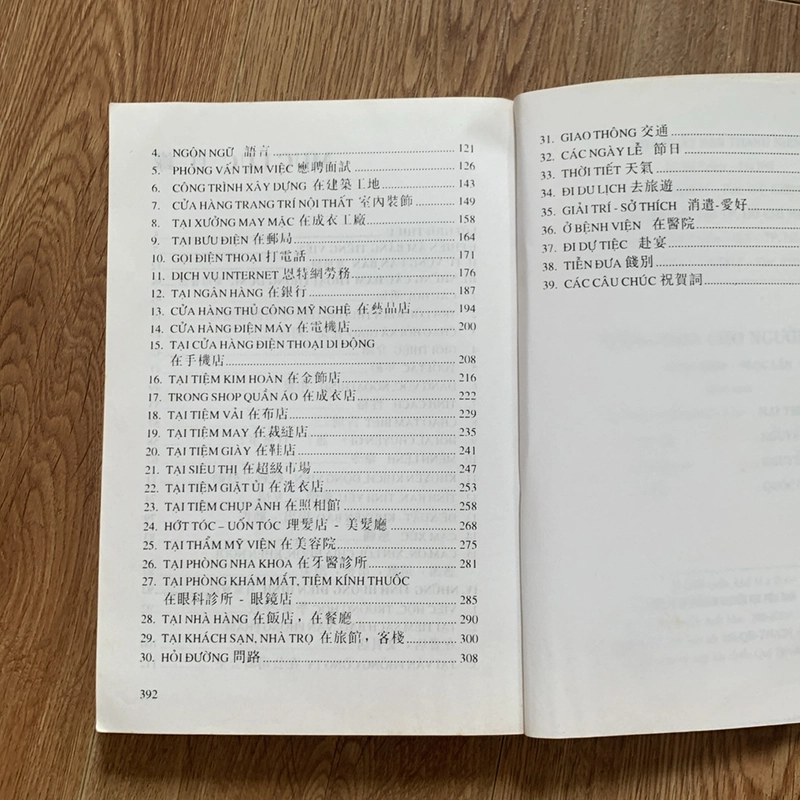 4. NGÔN NGỮ 語言 121
5. PHỎNG VẤN TÌM VIỆC 應聘面試 126
6. CÔNG TRÌNH XÂY DỰNG 在建築工地 143
7. CỬA HÀNG TRANG TRÍ NỘI THẤT 室內裝飾 149
8. TẠI XƯỞNG MAY MẶC 在成衣工廠 158
9. TẠI BƯU ĐIỆN 在郵局 164
10. GỌI ĐIỆN THOẠI 打電話 171
11. DỊCH VỤ INTERNET 恩特網勞務 176
12. TẠI NGÂN HÀNG 在銀行 187
13. CỬA HÀNG THỦ CÔNG MỸ NGHỆ 在藝品店 194
14. CỬA HÀNG ĐIỆN MÁY 在電機店 200
15. TẠI CỬA HÀNG ĐIỆN THOẠI DI ĐỘNG
在手機店 208
16. TẠI TIỆM KIM HOÀN 在金飾店 216
17. TRONG SHOP QUẦN ÁO 在成衣店 222
18. TẠI TIỆM VẢI 在布店 229
19. TẠI TIỆM MAY 在裁縫店 235
20. TẠI TIỆM GIÀY 在鞋店 241
21. TẠI SIÊU THỊ 在超級市場 247
22. TẠI TIỆM GIẶT ỦI 在洗衣店 253
23. TẠI TIỆM CHỤP ẢNH 在照相館 258
24. HỚT TÓC – UỐN TÓC 理髮店 - 美髮廳 268
25. TẠI THẨM MỸ VIỆN 在美容院 275
26. TẠI PHÒNG NHA KHOA 在牙醫診所 281
27. TẠI PHÒNG KHÁM MẮT, TIỆM KÍNH THUỐC
在眼科診所 - 眼鏡店 285
28. TẠI NHÀ HÀNG 在飯店，在餐廳 290
29. TẠI KHÁCH SẠN, NHÀ TRỌ 在旅館，客棧 300
30. HỎI ĐƯỜNG 問路 308
392
31. GIAO THÔNG 交通
32. CÁC NGÀY LỄ 節日
33. THỜI TIẾT 天氣
34. ĐI DU LỊCH 去旅遊
35. GIẢI TRÍ - SỞ THÍCH 消遣-愛好
36. Ở BỆNH VIỆN 在醫院
37. ĐI DỰ TIỆC 赴宴
38. TIỄN ĐƯA 餞別
39. CÁC CÂU CHÚC 祝賀詞